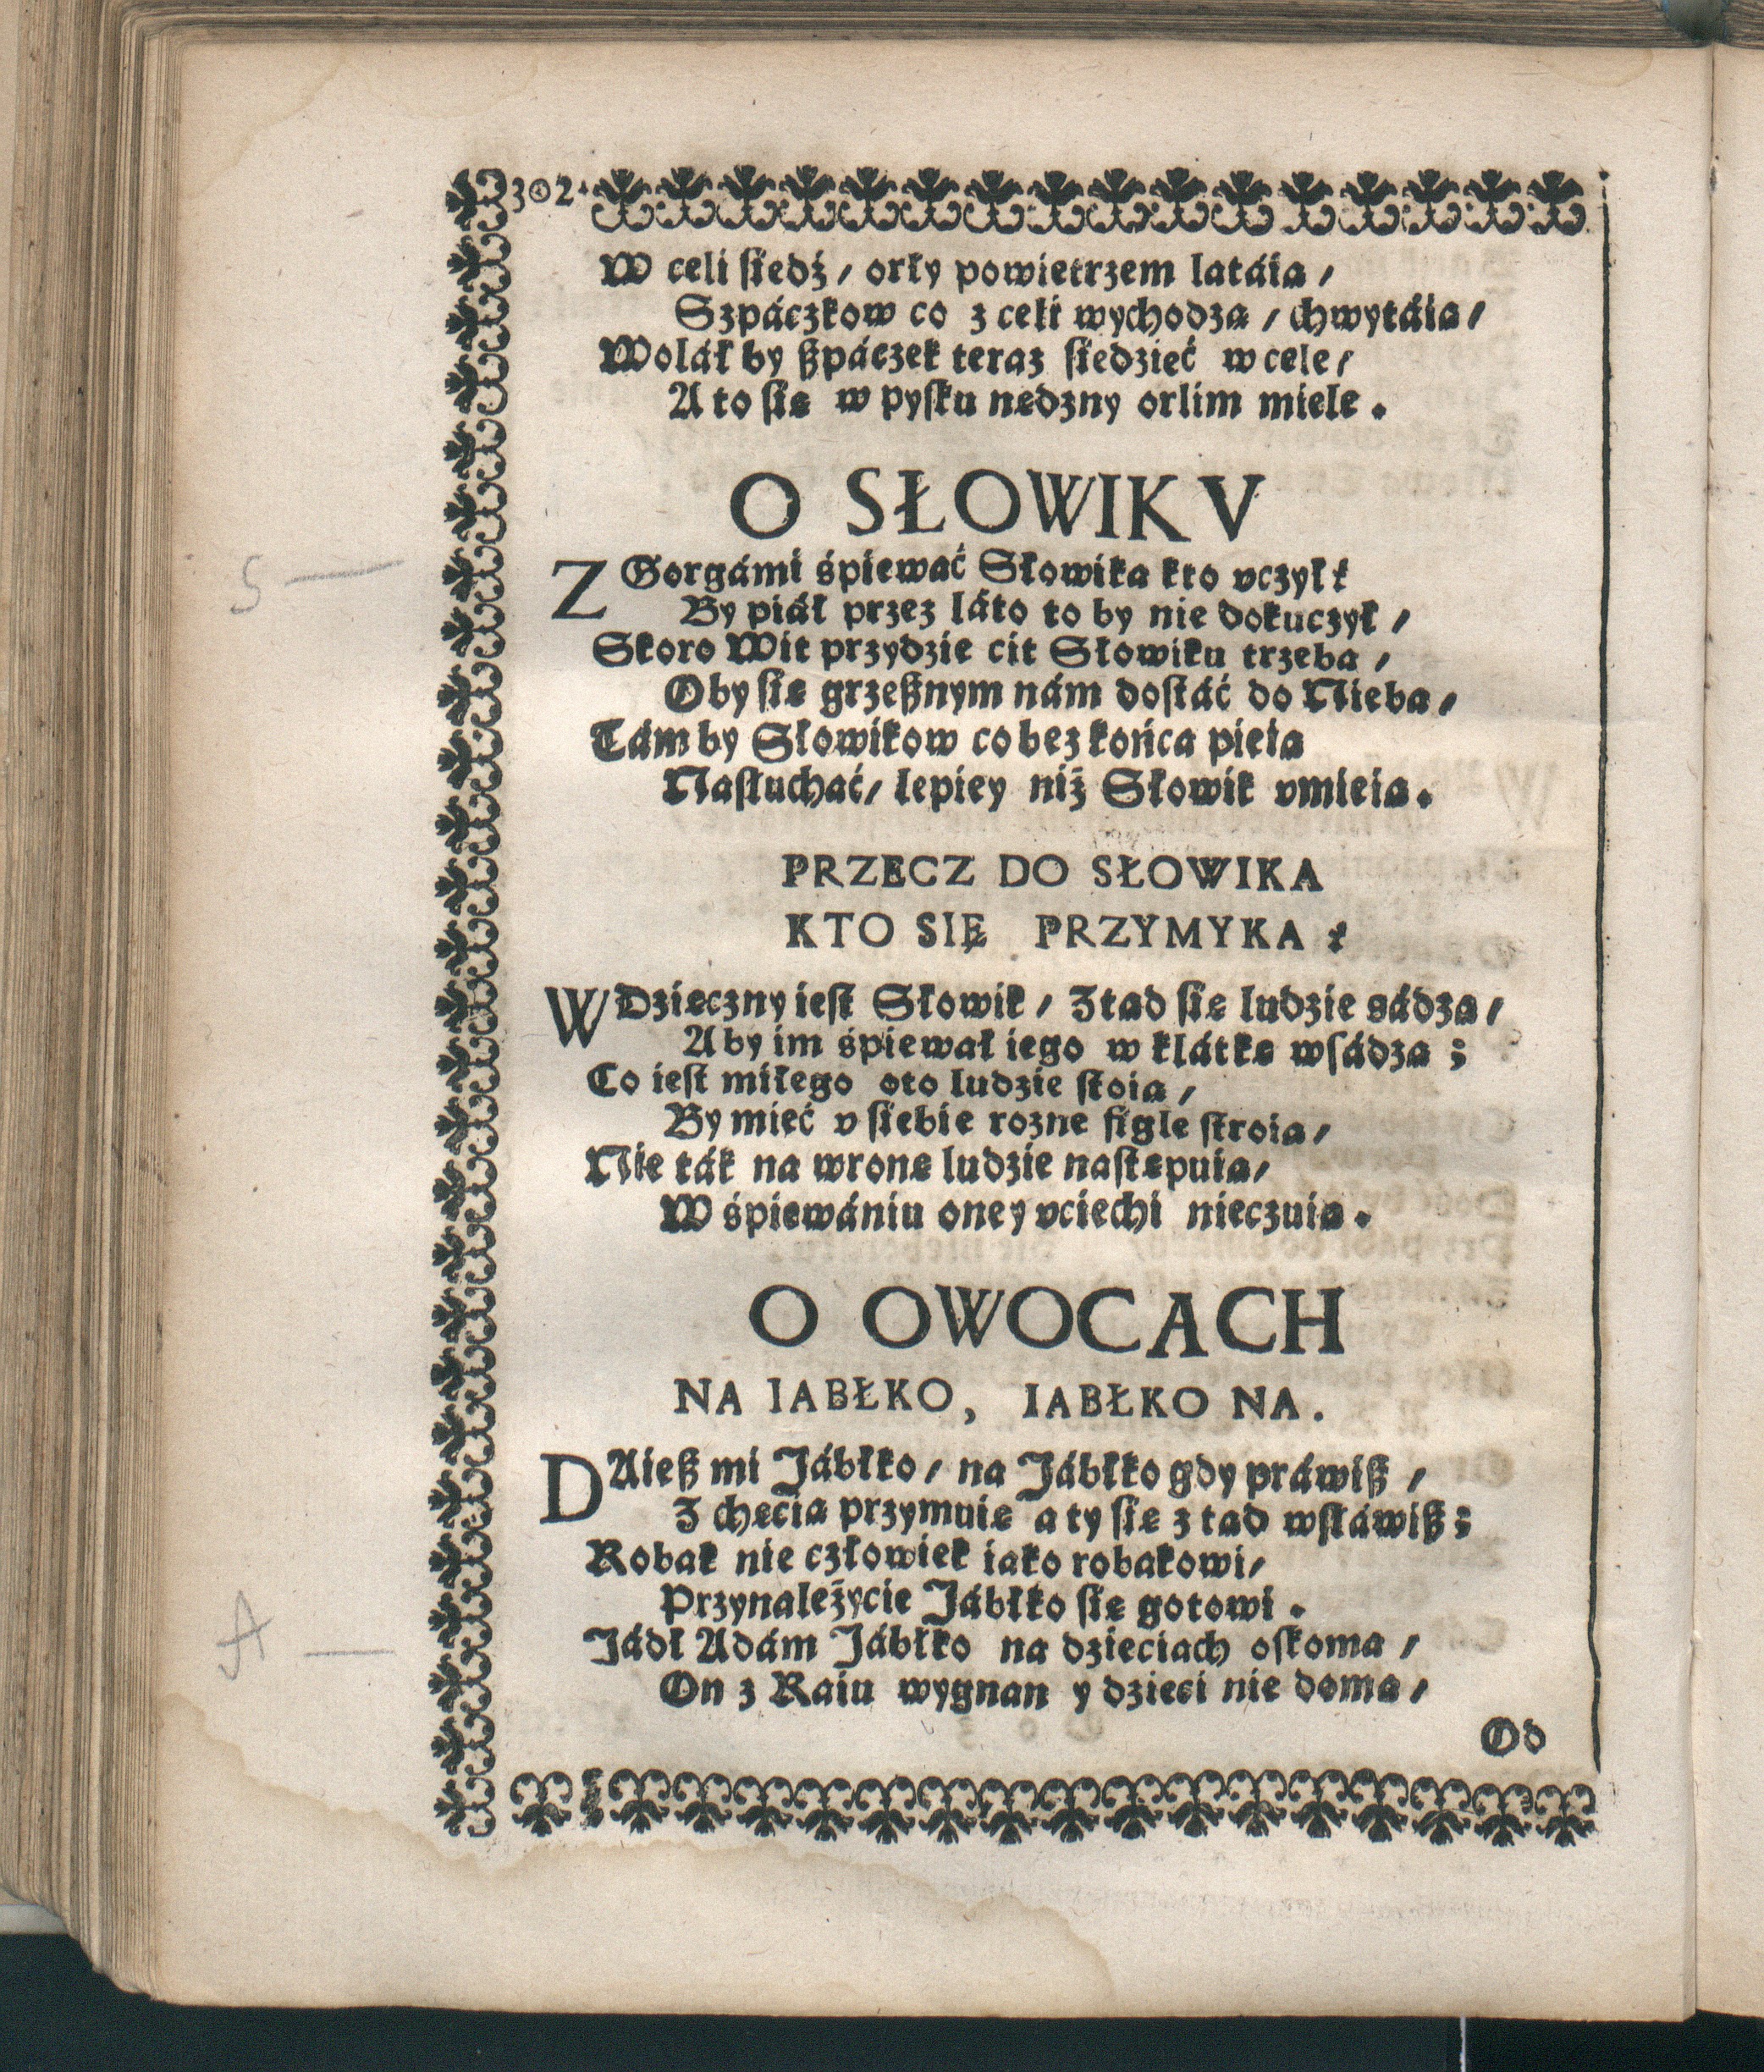 302.
W celi siedź / orły powietrzem latáią /
Szpáczkow co z celi wychodzą / chwytáią /
Wolał by szpáczek teraz siedzieć w cele /
A to się w pysku nędzny orlim miele .
O SŁOWIKV
Z Gorgámi śpiewać Słowika kto vczył?
By piáł przez láto to by nie dokuczył /
Skoro Wit przydzie cit Słowiku trzeba /
Oby się grzesznym nám dostáć do Nieba /
Tám by Słowikow co bez końca pieią
Nasłuchać / lepiey niż Słowik vmieią .
PRZECZ DO SŁOWIKA
KTO SIĘ PRZYMYKA ?
WDzięczny iest Słowik / Ztąd się ludzie sádzą /
Aby im śpiewał iego w klátkę wsádzą ;
Co iest miłego oto ludzie stoią /
By mieć v siebie rozne figle stroią /
Nie ták na wronę ludzie następuią /
W śpiewániu oney vciechi nieczuią .
O OWOCACH
NA IABŁKO, IABŁKO NA.
DAiesz mi Jábłko / na Jábłko gdy práwisz /
Z chęcią przymuię a ty się z tąd wsłáwisz ;
Robak nie człowiek iako robakowi /
Przynależycie Jábłko się gotowi .
Jádł Adám Jábłko na dzieciach oskoma /
On z Raiu wygnan y dzieci nie doma /
Od
S —
A —